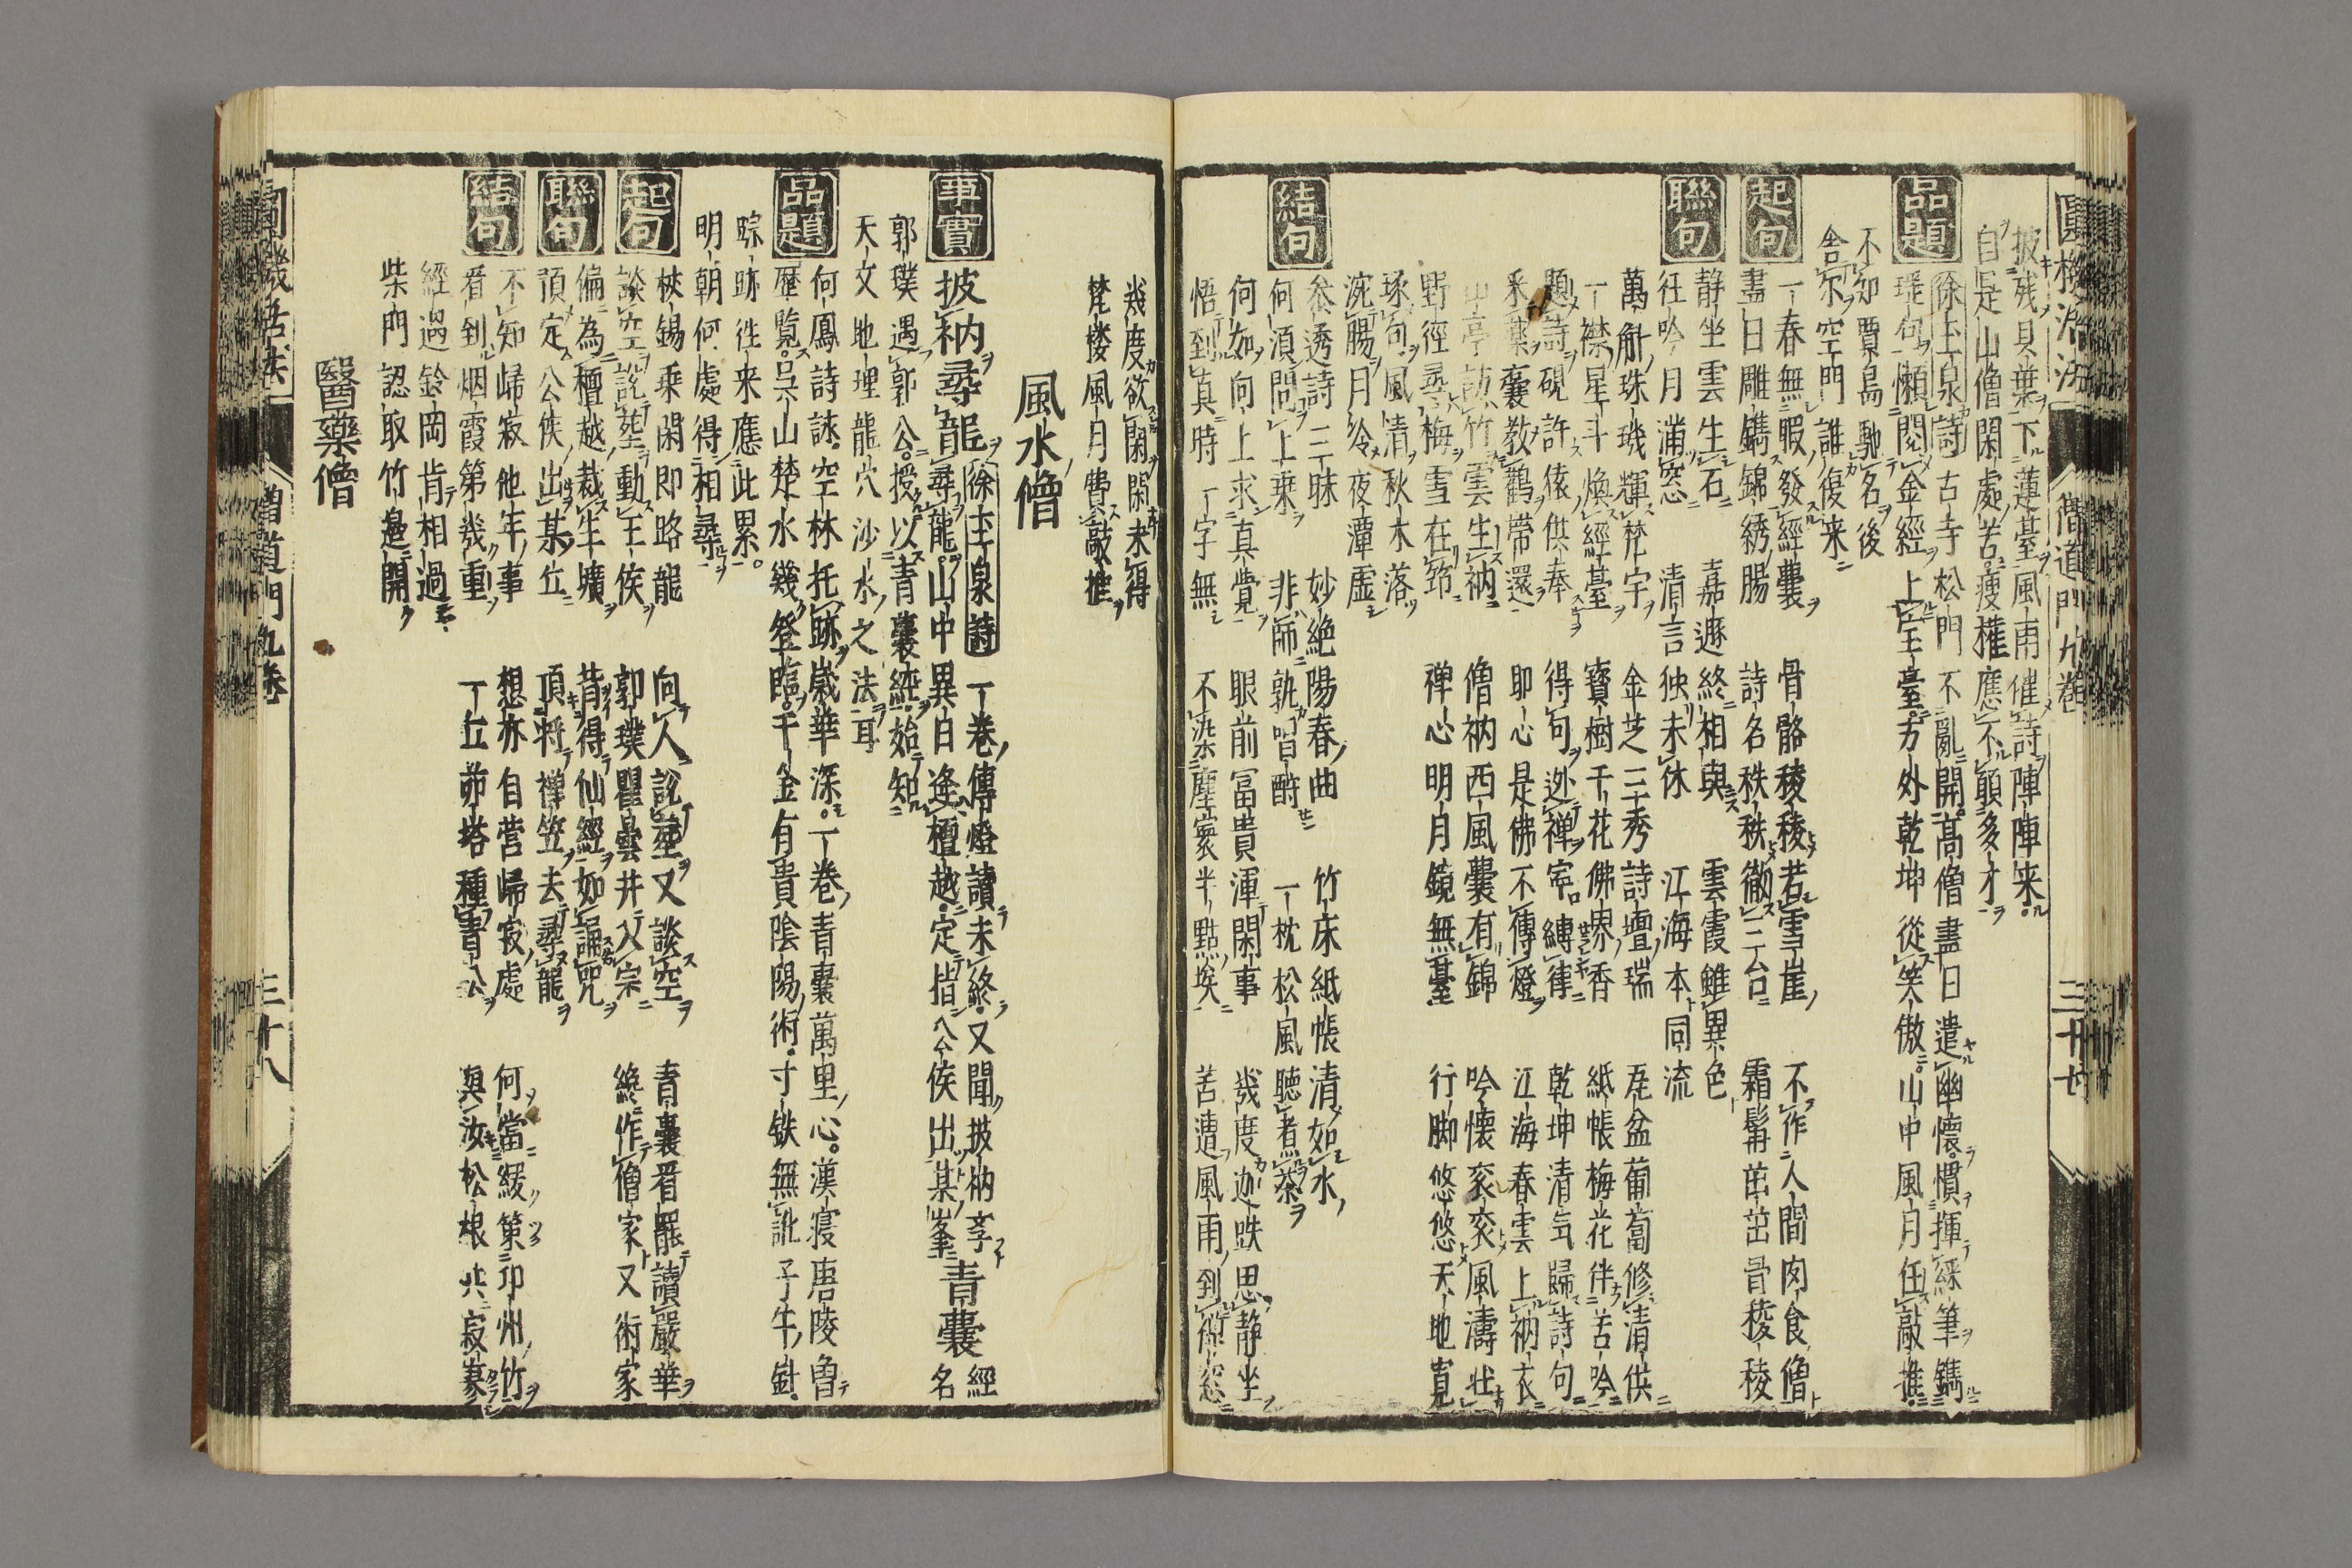 圓機活法 僧道門九卷 三十七
披残貝葉下蓮臺風雨催詩陣陣来
自是山僧閑處苦瘦權應不願多才
品題 徐玉泉詩 古寺松門不亂開高僧盡日遣幽懷慣揮綵筆鐫
瑤句懶閱金經上玉臺方外乾坤從笑傲山中風月任敲推
不知賈島馳名後
舎尓空門誰復来
起句 一春無暇發經囊 骨骼稜稜若雪崖 不作人間肉食僧
盡日雕鐫錦綉腸 詩名秩秩徹三台 霜髯茁茁骨稜稜
聯句 静坐雲生石 嘉遯終相與 雲霞雖異色
往吟月滿窓 清言独未休 江海本同流
萬斛珠璣輝梵宇 金芝三秀詩壇瑞 瓦盆葡萄修清供
一襟星斗煥經臺 寳樹千花佛界香 紙帳梅花伴苦吟
題詩硯許猿供奉 得句迯禅寧縛律 乾坤清気歸詩句
釆藥囊教鶴帯還 即心是佛不傳燈 江海春雲上衲衣
山亭訪竹雲生衲 僧衲西風囊有錦 吟懷衮衮風濤壮
野徑尋梅雪在筇 禅心明月鏡無臺 行脚悠悠天地寛
琢句風清秋木落
浣腸月冷夜潭虚
結句 叅透詩三昧 妙絶陽春曲 竹床紙帳清如水
何須問上乗 非師孰唱酧 一枕松風聴煮茶
何如向上求真覺 眼前冨貴渾閑事 幾度迦趺思静坐
悟到真時一字無 不染塵寰半點埃 苦遭風雨到禅窓
幾度欲閑閑未得
梵楼風月費敲推
風水僧
事實 披衲尋龍 徐玉泉詩 一卷傳燈讀未終又聞披衲
尋龍山中異日逢檀越定指公侯出某峯 青囊 經名
郭璞遇郭公授以青囊經始知
天文地理龍穴沙水之法耳
品題 何鳳詩詠空林托跡歳華深一卷青囊萬里心漢寝唐陵魯
歴覧呉山楚水幾登臨千金有貴陰陽術寸鉄無訛子午針
踪跡往来應此累
明朝何處得相尋
起句 梜錫乗閑即路龍 向人説塟又談空 青囊看罷讀嚴華
談空説塟動王侯 郭璞瞿曇并入宗 纔作僧家又術家
聯句 偏為檀越裁牛壙 昔得仙經如誦咒
預定公侯出某丘 頂将禅笠去尋龍
結句 不知歸寂他年事 想亦自营歸寂處 何當緩策卭州竹
看到烟霞第幾重 一丘茆塔種青公 與汝松根共寂寥
經過鈴岡肯相過
柴門認取竹邊開
醫藥僧
圓機活法 僧道門九卷 三十八